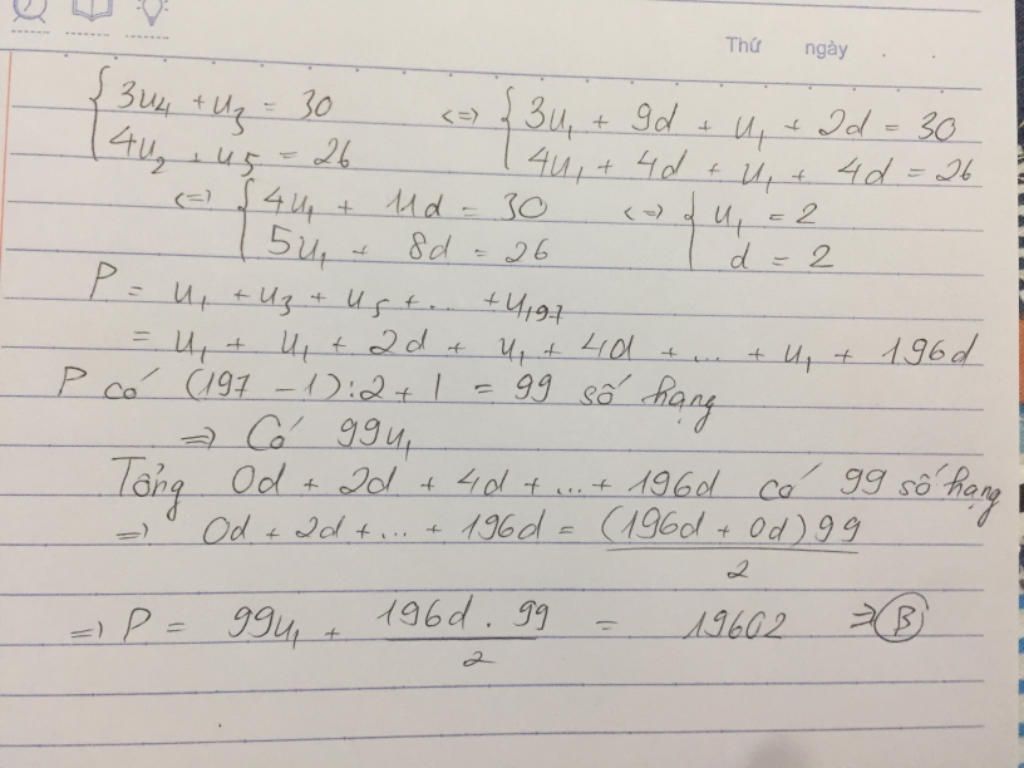 Thứ ngày . .
{ 3u₄ + u₃ = 30 <=> { 3u₁ + 9d + u₁ + 2d = 30
4u₂ + u₅ = 26 4u₁ + 4d + u₁ + 4d = 26
<=> { 4u₁ + 11d = 30 <=> { u₁ = 2
5u₁ + 8d = 26 d = 2
P = u₁ + u₃ + u₅ + ... + u₁₉₇
= u₁ + u₁ + 2d + u₁ + 4d + ... + u₁ + 196d
P có (197 - 1):2 + 1 = 99 số hạng
=> Có 99u₁
Tổng 0d + 2d + 4d + ... + 196d có 99 số hạng
=> 0d + 2d + ... + 196d = (196d + 0d)99 / 2
=> P = 99u₁ + 196d . 99 / 2 = 19602 => B